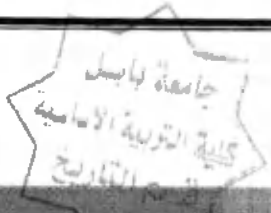 جامعة بابل
كلية التربية الاساسية
قسم التاريخ